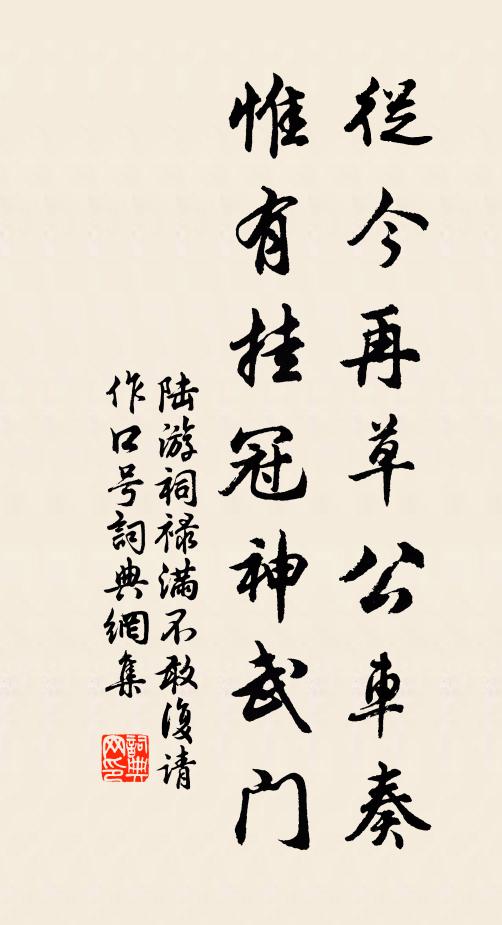 從今再草公車奏
惟有挂冠神武門
陆游祠禄满不敢復请
作口号詞典網集
詞典網印